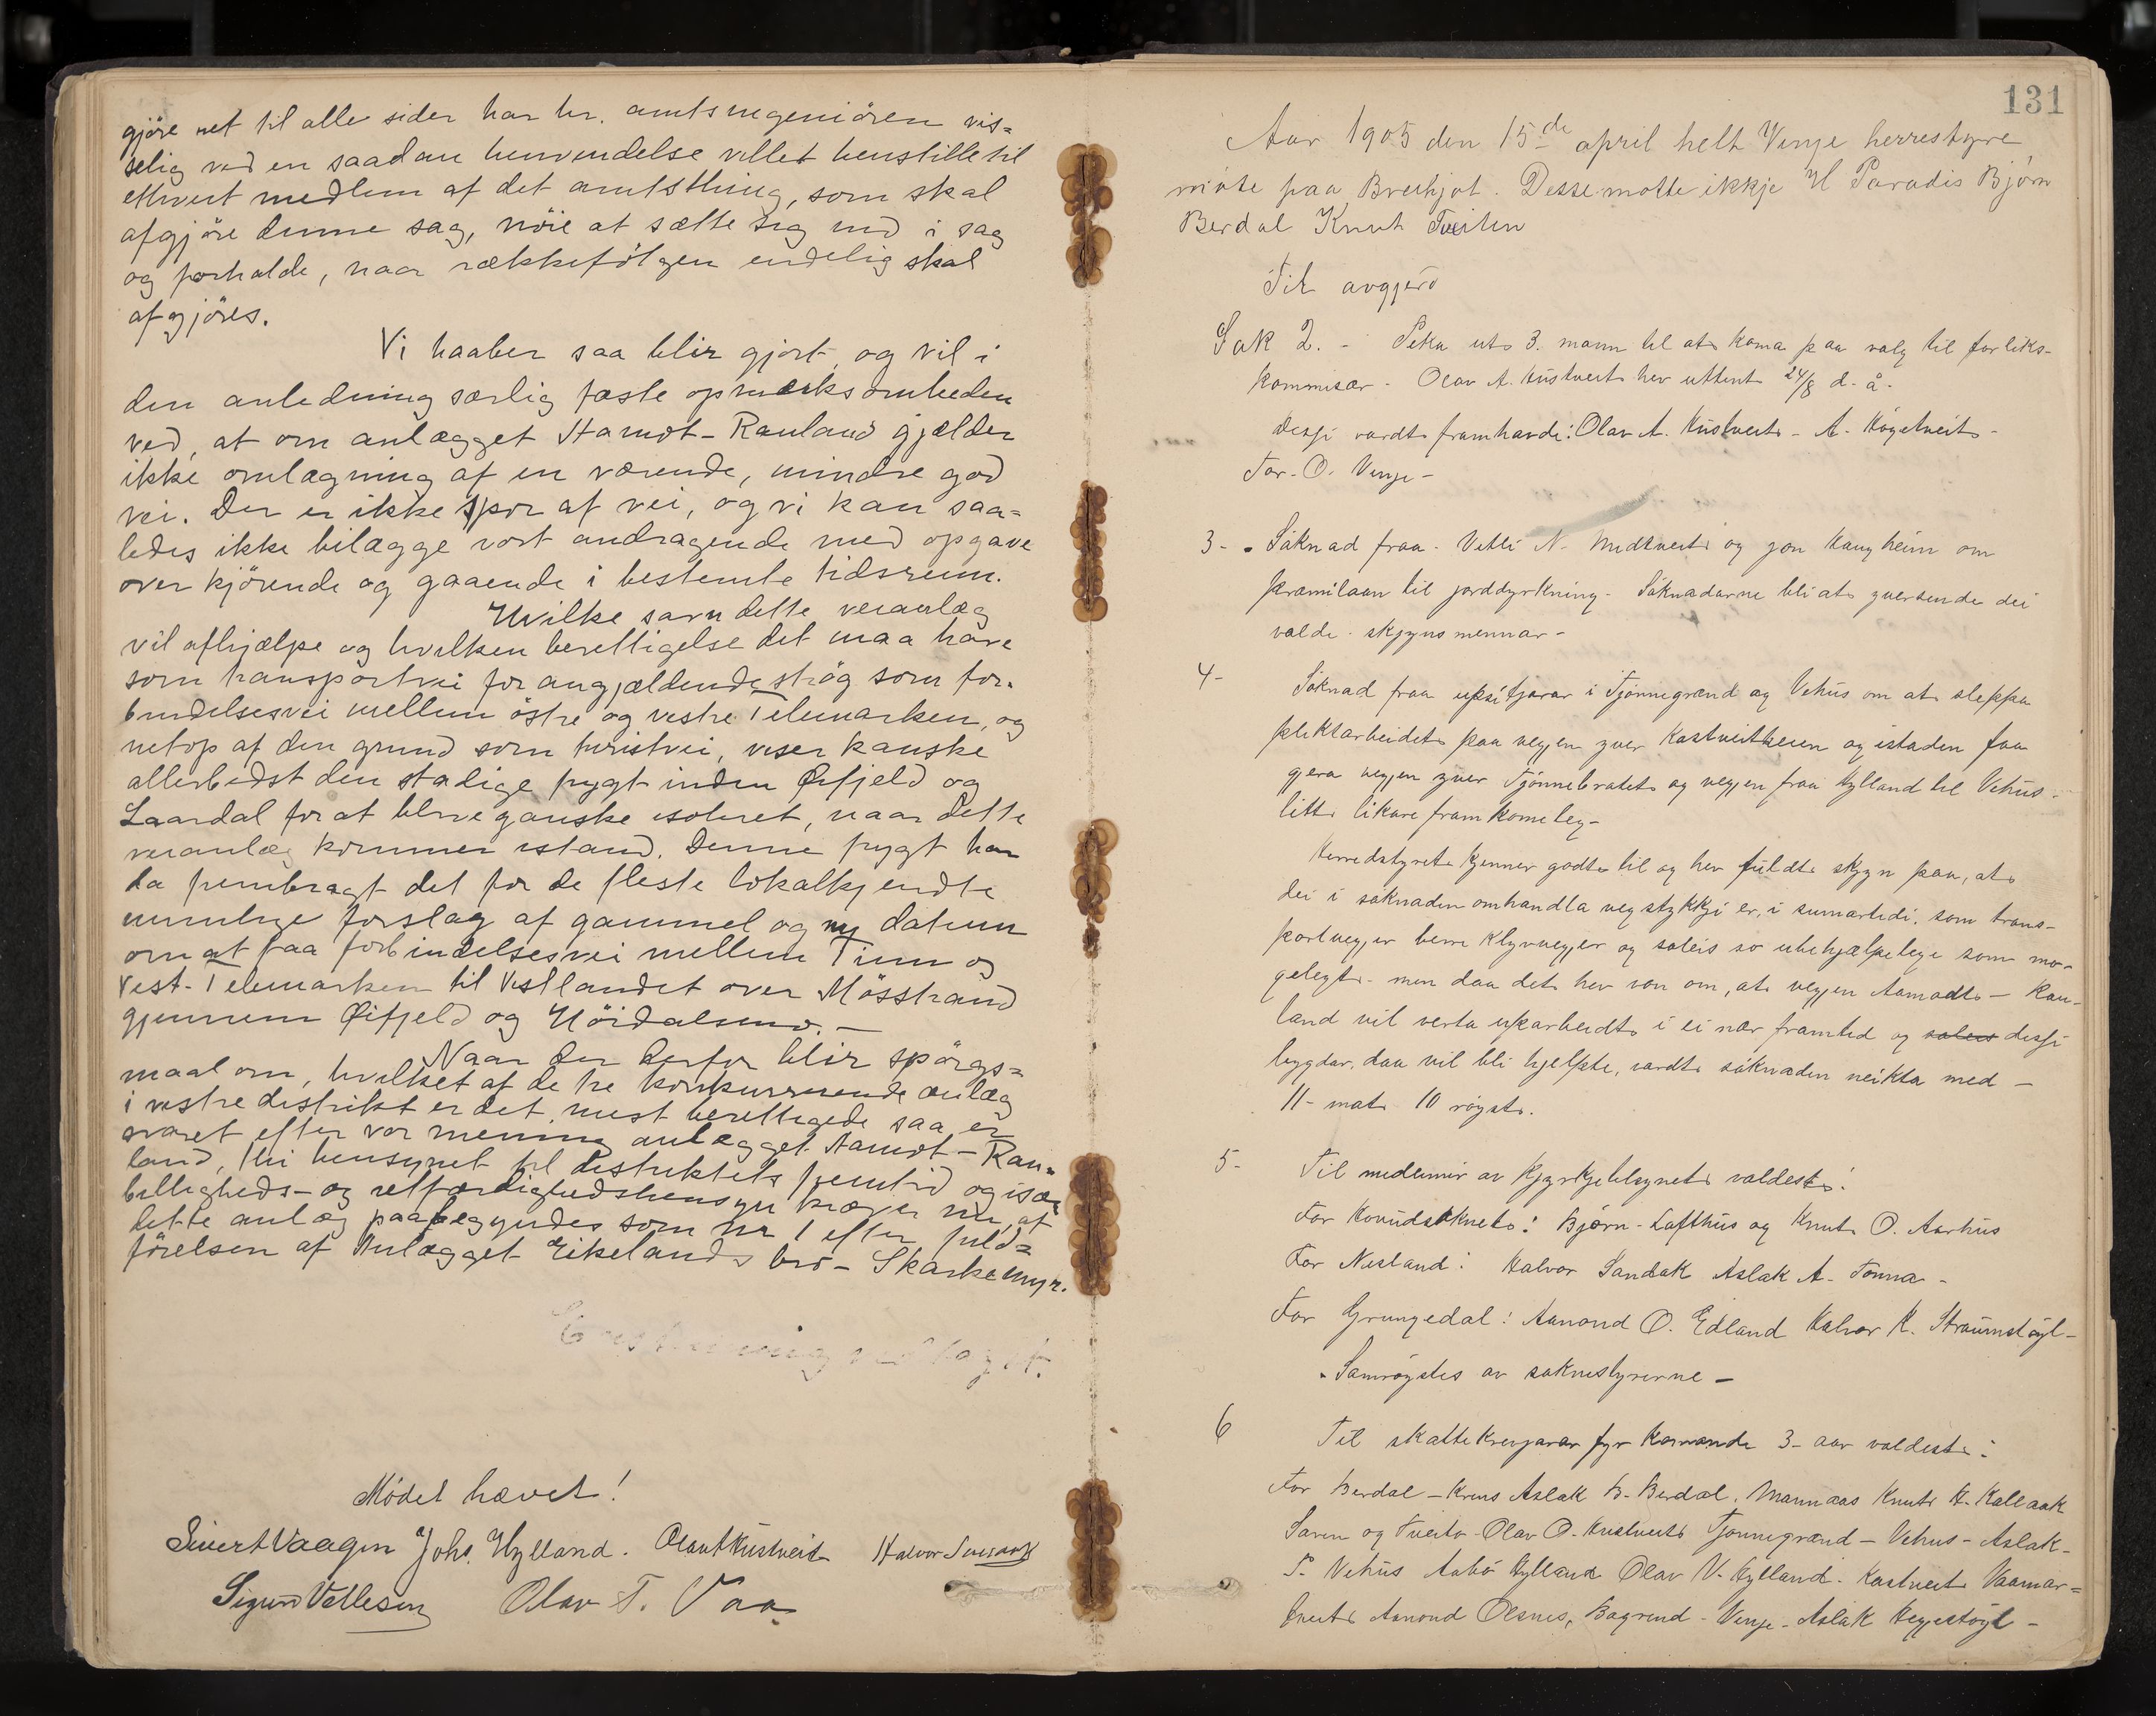 gjøre ret til alle sider har hr. amtsingeniøren vis=
selig ved en saadan henvendelse villet henstille til
ethvert medlem af det amtsthing, som skal
afgjøre denne sag, nöie at sætte sig ind i sag
og forholde, naar rækkefölgen endelig skal
afgjöres.
Vi haaber saa blir gjort, og vil i
den anledning særlig fæste opmærksomheden
ved, at om anlægget Aamot-Rauland gjælder
ikke omlægning af en værende, mindre god
vei. Der er ikke spor af vei, og vi kan saa=
ledes ikke bilægge vort andragende med opgave
over kjörende og gaaende i bestemte tidsrum.
Hvilke savn dette veianlæg
vil afhjælpe og hvilken berettigelse det maa have
som transportvei for angjældende strög som for-
bindelsesvei mellem östre og vestre Telemarken, og
netop af den grund som turistvei, viser kanske
allerbedst den stadige frygt inden Øifjeld og
Laardal for at blive ganske isoleret, naar dette
veianlæg kommer istand. Denne frygt har
da frembragt det for de fleste lokalkjendte
umulige forslag af gammel og ny datum
om at faa forbindelsesvei mellem Tinn og
Vest-Telemarken til Vestlandet over Mösstrand
gjennem Øifjeld og Höidalsmo. —
Naar der derfor blir spörgs=
maal om, hvilket af de tre konkurrerende anlæg
i vestre distrikt er det mest berettigede saa er
svaret efter vor mening anlægget Aamot - Rau=
land, thi hensynet til distriktets fremtid og især
billigheds- og retfærdighedshensyn kræver nu, at
dette anlæg paabegyndes som nr 1 efter fuld=
förelsen af Anlægget Eikelands bro - Skarkemyr.
Mödet hævet!
Sivert Vaagen Johs. Hylland. Olav A Kustveit Halvor
Sigurd Vetlesen Olav T. Vaa
131
Aar 1905 den 15de april helt Vinje herrestyre
möte paa Breihjot. Desse motte ikkje H Paradis Bjørn
Berdal Knut Tveiten
Til avgjerd
Sak 2. - Peka ut 3. mann til at koma paa valg til forliks-
kommisær - Olav A. Kustveit hev uttent 24/8 d. å.
Dessi vardt framhavde: Olav A. Kustveit - A. Högetveit -
Tor. O. Vinje -
3- Söknad fraa Vetli N. Midtveit og Jon Haugheim om
præmilaan til jorddyrkning - Söknadarne bli at yversende dei
valde skjynsmennar -
4- Söknad fraa upsitjarar i Tjönnegrænd og Vehus om at sleppa
pliktarbeidet paa vegjen yver Kostveitheien og istaden faa
gjera vegjen yver Tjönnebratet og vegjen fraa Hylland til Vehus
litt likare framkomeleg -
Herredstyret kjenner godt til og hev fuldt skjyn paa, at
dei i söknaden omhandla vegstykkji er, i sumartidi, som trans-
portvegjer berre klyvvegjer og soleis so ubehjælpelege som mo-
gelegt - men daa det hev von om, at vegjen Aamodt - Rau-
land vil verta uparbeidt i ei nær framtid og soleis dessi
bygdar, daa vil bli hjelpte, vardt söknaden neikta med -
11 - mot 10 röyst.
5- Til medlemir av Kjyrkjetilsynet valdest:
For Hovudsoknet: Bjørn Lofthus og Knut O. Aarhus
For Nesland: Halvor Sandok Aslak A. Tonna -
For Grungedal: Aamond O. Edland Halvor K. Straumstöyl -
Samröystes av soknestyrerne -
6 Til skattekrevjarar fyr komande 3- aar valdest:
For Berdal - krins Aslak B. Berdal, Mannaas Knut H. Kallaak
Saren og Tveito - Olav O. Kustveit Tjonnegrænd - Vehus - Aslak
P. Vehus Aabö Hylland Olav V. Hylland. Kostveit Vaamar=
tveit Aamond Olsnes, Bögrend - Vinje - Aslak Heggestöyl -